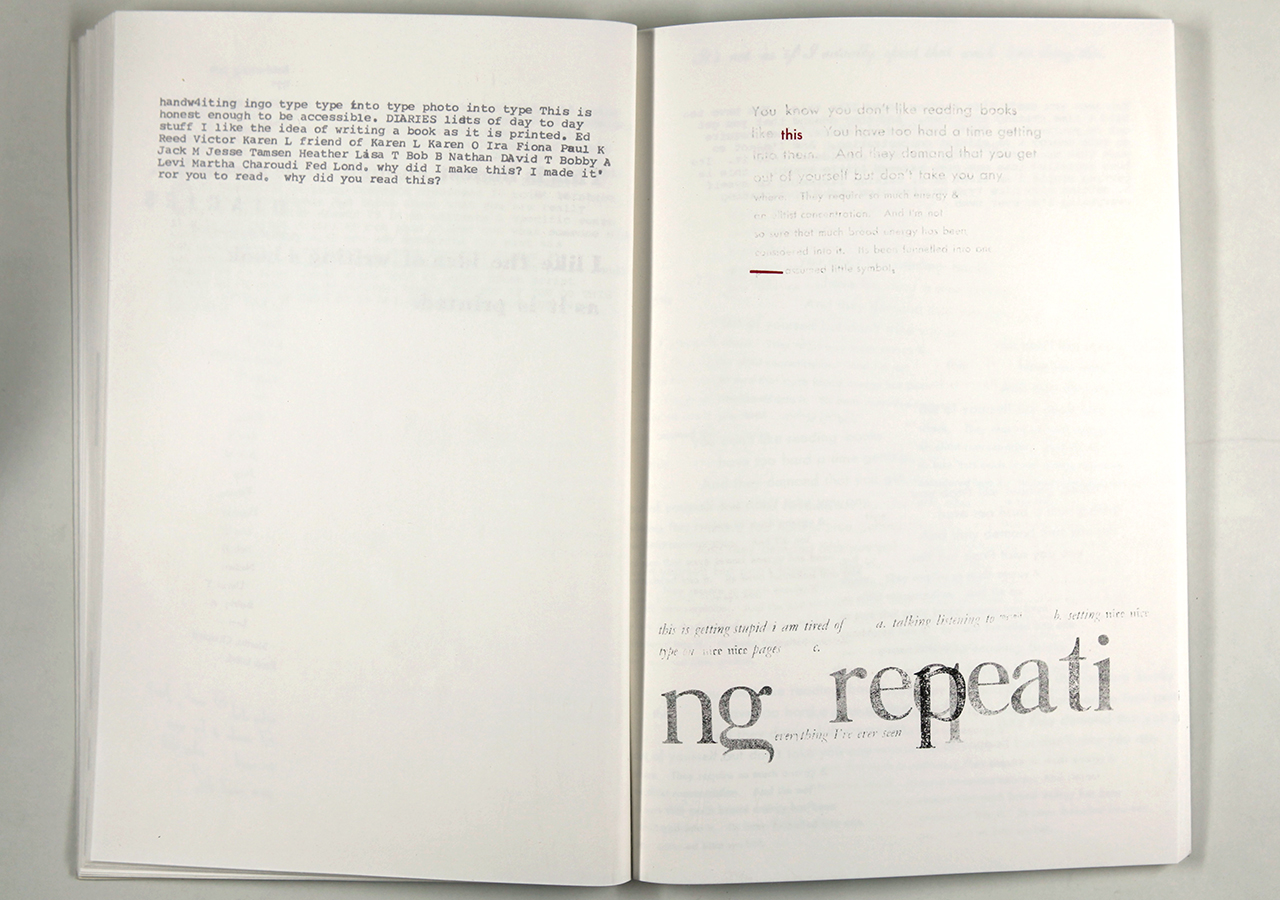 handw4iting ingo type type into type photo into type This is
honest enough to be accessible. DIARIES lidts of day to day
stuff I like the idea of writing a book as it is printed. Ed
Reed Victor Karen L friend of Karen L Karen O Ira Fiona Paul K
Jack M Jesse Tamsen Heather Lisa T Bob B Nathan DAvid T Bobby A
Levi Martha Charoudi Fed Lond. why did I make this? I made it"
ror you to read. why did you read this?
You know you don't like reading books
like this You have too hard a time getting
into them. And they demand that you get
out of yourself but don't take you any
where. They require so much energy &
concentration. And I'm not
so sure that much broad energy has been
into it. Its been funnelled into one
assumed little symbol,
this is getting stupid i am tired of a. talking listening to b. setting nice nice
type nice nice pages c.
ng repeati
everything I've ever seen